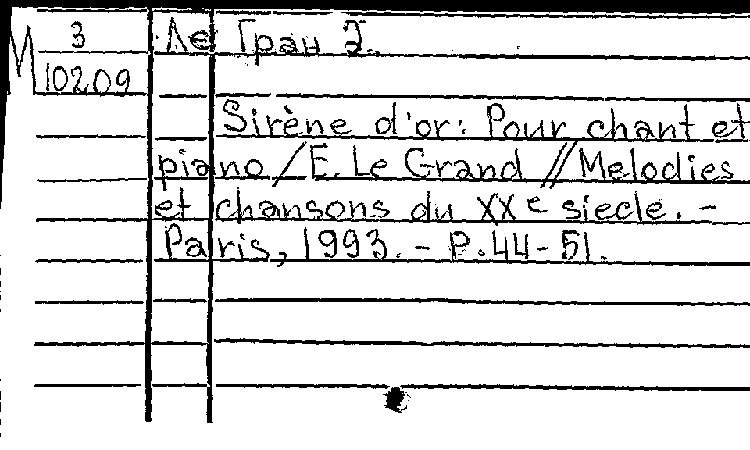 М 3
10209
Ле Гран Э.
Sirène d'or: Pour chant et
piano / E. Le Grand // Melodies
et chansons du XXe siecle. -
Paris, 1993. - P.44-51.